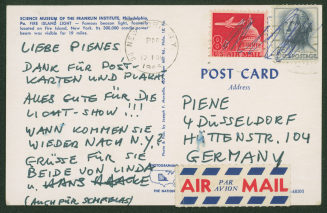 SCIENCE MUSEUM OF THE FRANKLIN INSTITUTE, Philadelphia,
Pa. FIRE ISLAND LIGHT — Famous beacon light, formerly
located on Fire Island, New York. Its 300,000 candle-power
beam was visible for 19 miles.
LIEBE PIENES
DANK FÜR POST-
KARTEN UND PLAKAT
ALLES GUTE FÜR DIE
LICHT-SHOW!!!
WANN KOMMEN SIE
WIEDER NACH N.Y.?
GRÜSSE FÜR SIE
BEIDE VON LINDA
u. HANS HAACKE
(AUCH FÜR
PM
8¢
U.S. AIR MAIL
U.S. POSTAGE
POST CARD
Address
PIENE
4 DÜSSELDORF
HÜTTENSTR. 104
GERMANY
AIR PAR AVION MAIL